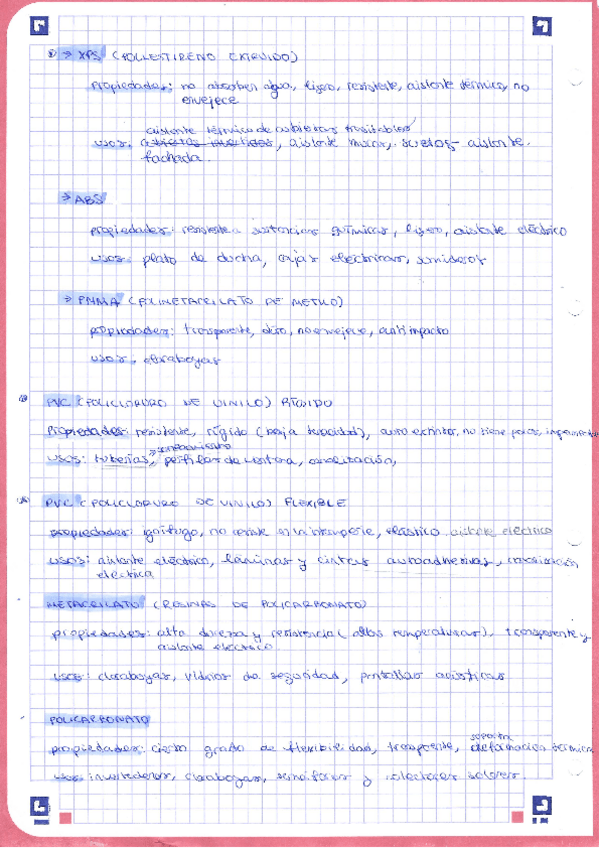 → XPS (POLIESTIRENO EXTRUIDO)
propiedades: no absorben agua, ligero, resistente, aislante térmico, no
envejece
aislante térmico de cubiertas transitables
usos: cubiertas invertidas, aislante muros, suelos aislante
fachada.
→ ABS
propiedades: resistente a sustancias químicas, ligero, aislante eléctrico
usos: plato de ducha, cajas eléctricas, sumideros
→ PMMA (POLIMETACRILATO DE METILO)
propiedades: transparente, duro, no envejece, antiimpacto
usos: claraboyas
PVC (POLICLORURO DE VINILO) RÍGIDO
Propiedades: resistente, rígido (baja tenacidad), auto extintor, no tiene poros, impermeable
saneamiento
usos: tuberías, perfiles de ventana, canalización,
PVC (POLICLORURO DE VINILO) FLEXIBLE
propiedades: ignífugo, no resiste en intemperie, elástico aislante eléctrico
usos: aislante eléctrico, láminas y cintas autoadhesivas,
eléctrica
METACRILATO (RESINAS DE POLICARBONATO)
propiedades: alta dureza y resistencia (altas temperaturas), transparente y
aislante eléctrico.
usos: claraboyas, vidrios de seguridad, pantallas acústicas
POLICARBONATO
soporta
propiedades: cierto grado de flexibilidad, transparente, deformación térmica
usos: invernaderos, claraboyas, semáforos y colectores solares.